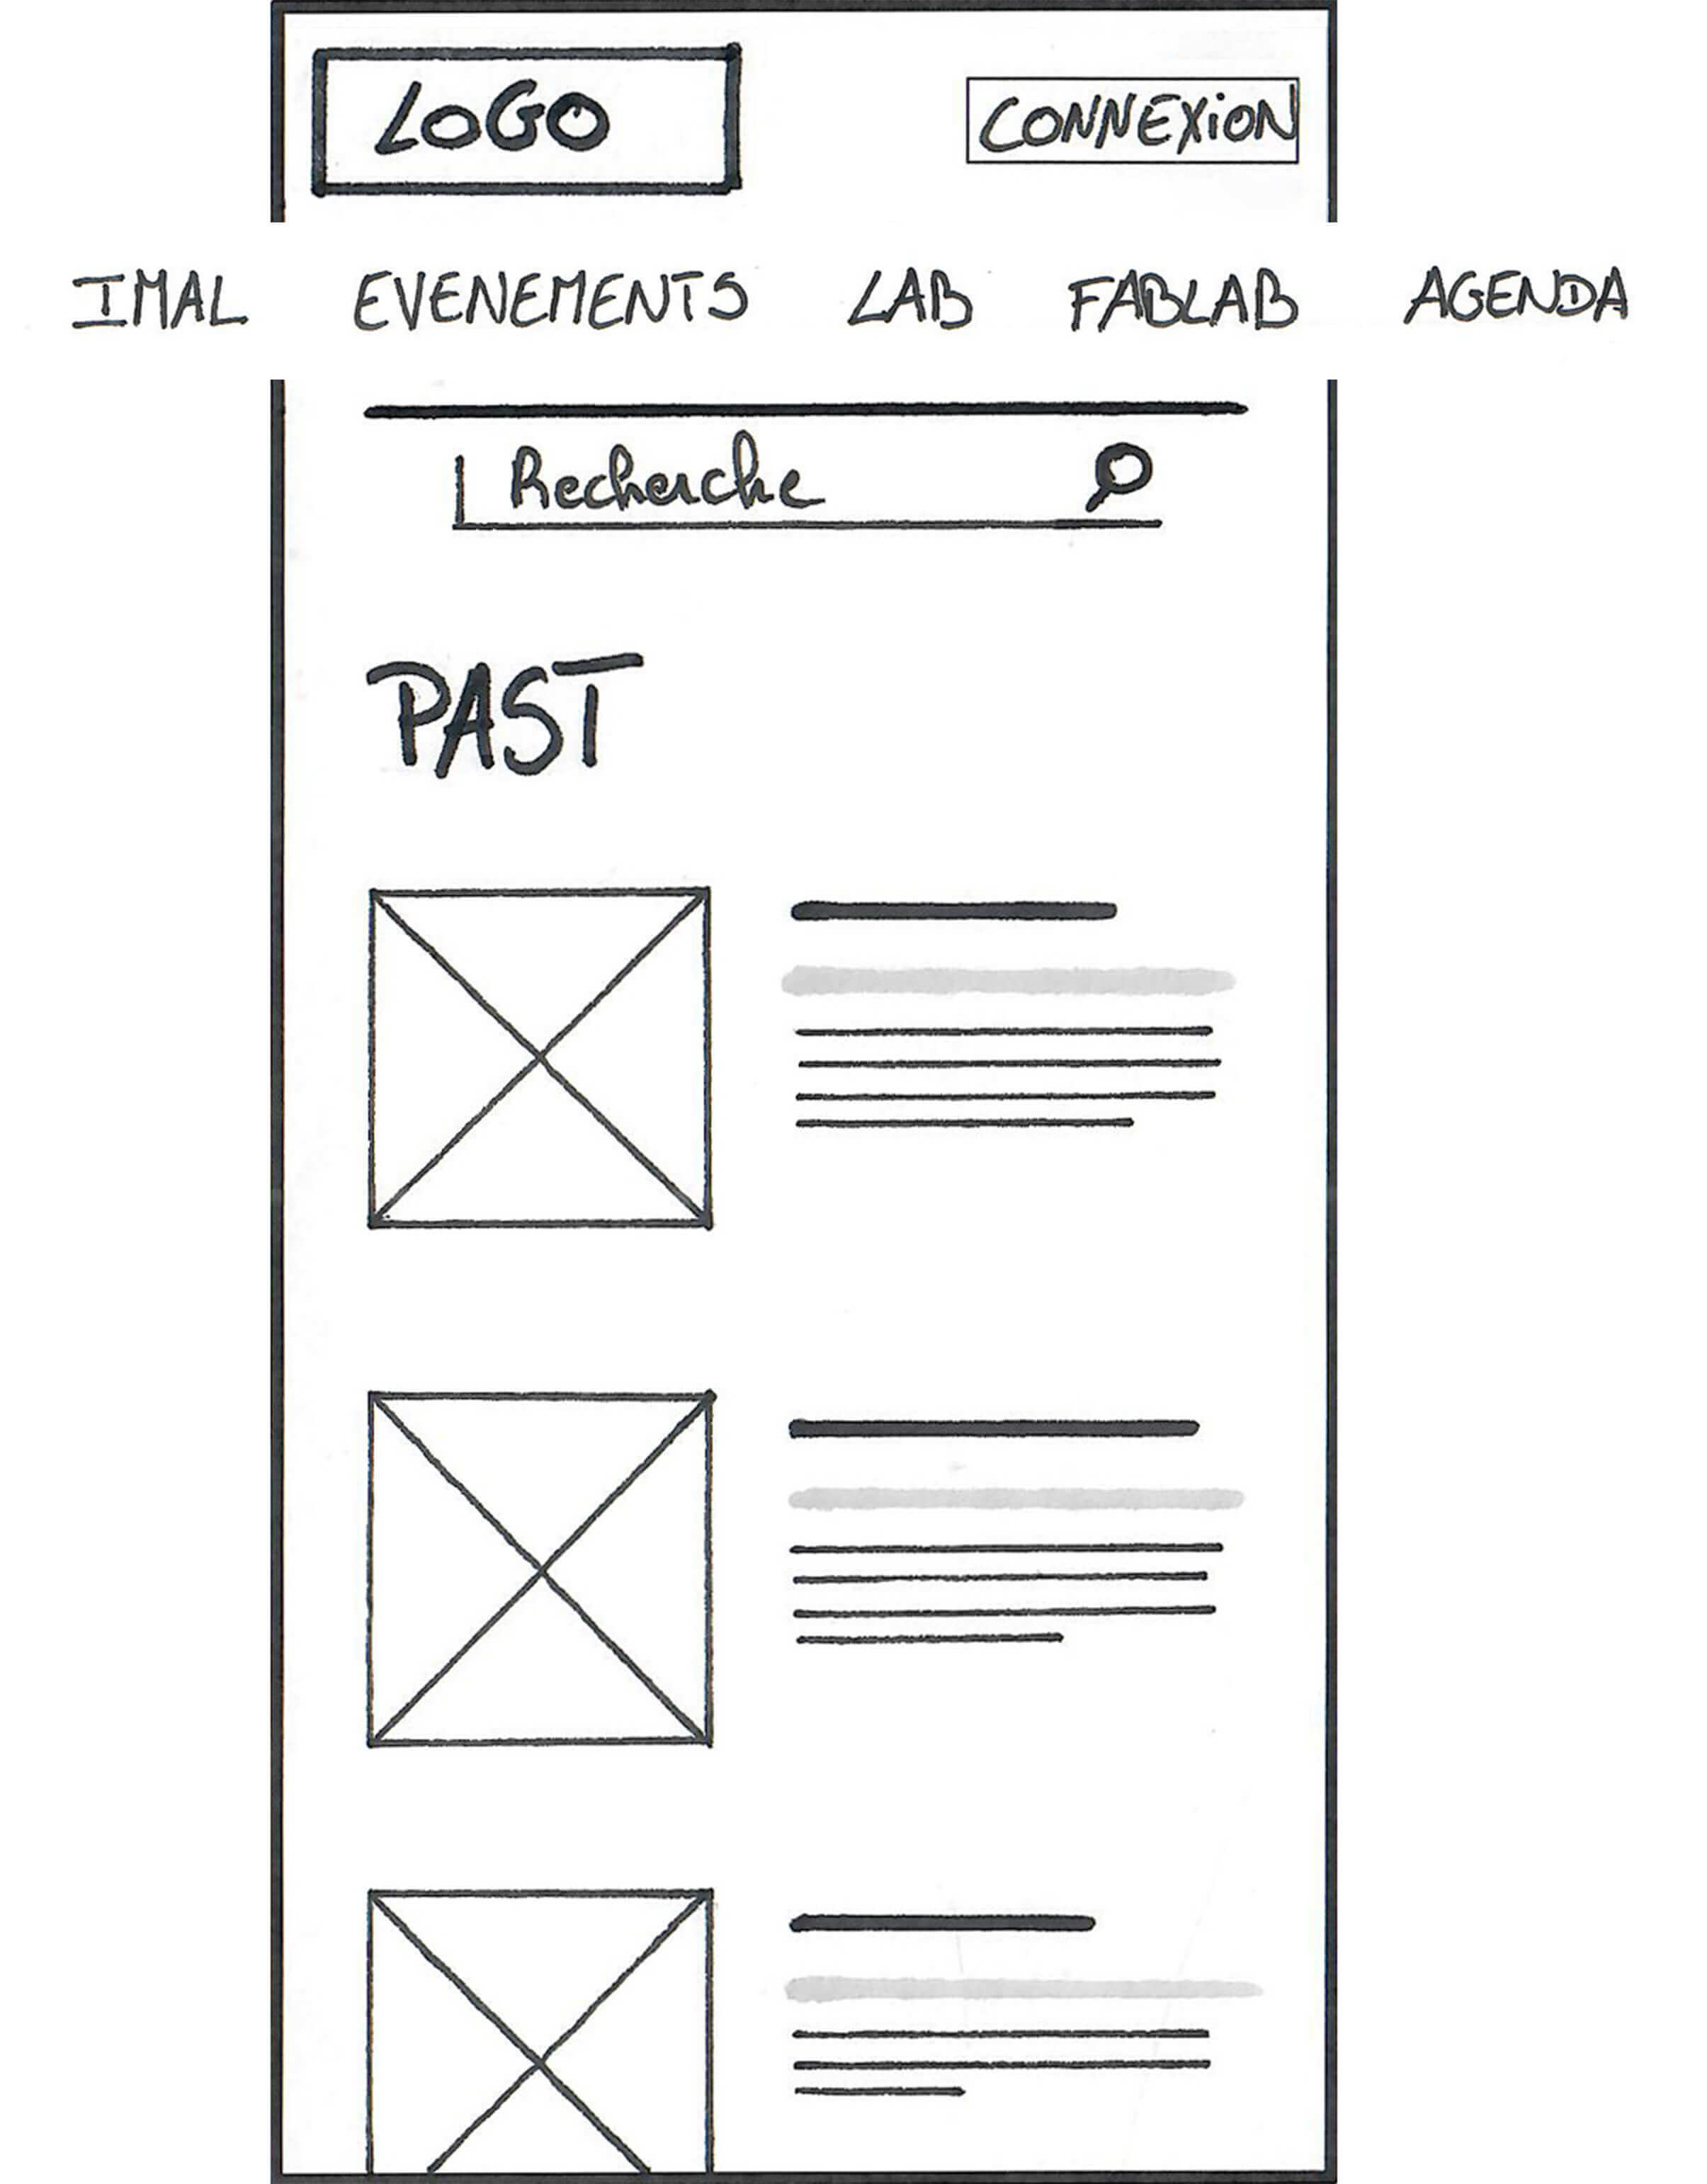 LOGO CONNEXION
IMAL EVENEMENTS LAB FABLAB AGENDA
Recherche
PAST